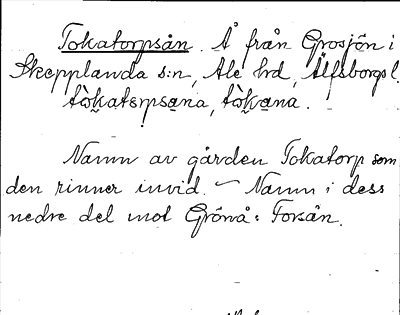 Tokatorpsån. Å från Grosjön i
Skepplanda s:n, Ale hrd, Älfsborgs l.
tòkatɘrpsana, tòkana.
Namn av gården Tokatorp som
den rinner invid. — Namn i dess
nedre del mot Grönå: Forsån.